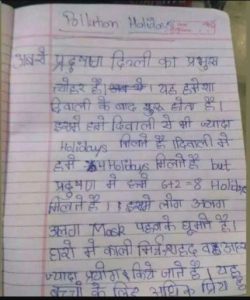 Pollution Holidays
अबसे प्रदुषण दिवली का प्रमुख
त्योहार है। यह हमेशा
दिवाली के बाद शुरू होता है।
इसमे हमे दिवाली से भी ज्यादा
Holidays मिलते है। दिवाली मे
हमे 4 Holidays मिलते है but
प्रदुषण मे हमे 6+2=8 Holiday
मिलते है। इसमे लोग अलग
अलग Mask पहनके घूमते है।
घरो मे काली मिर्च, शहद
ज्यादा प्रयोग किये जाते है। यह
बच्चो के लिए